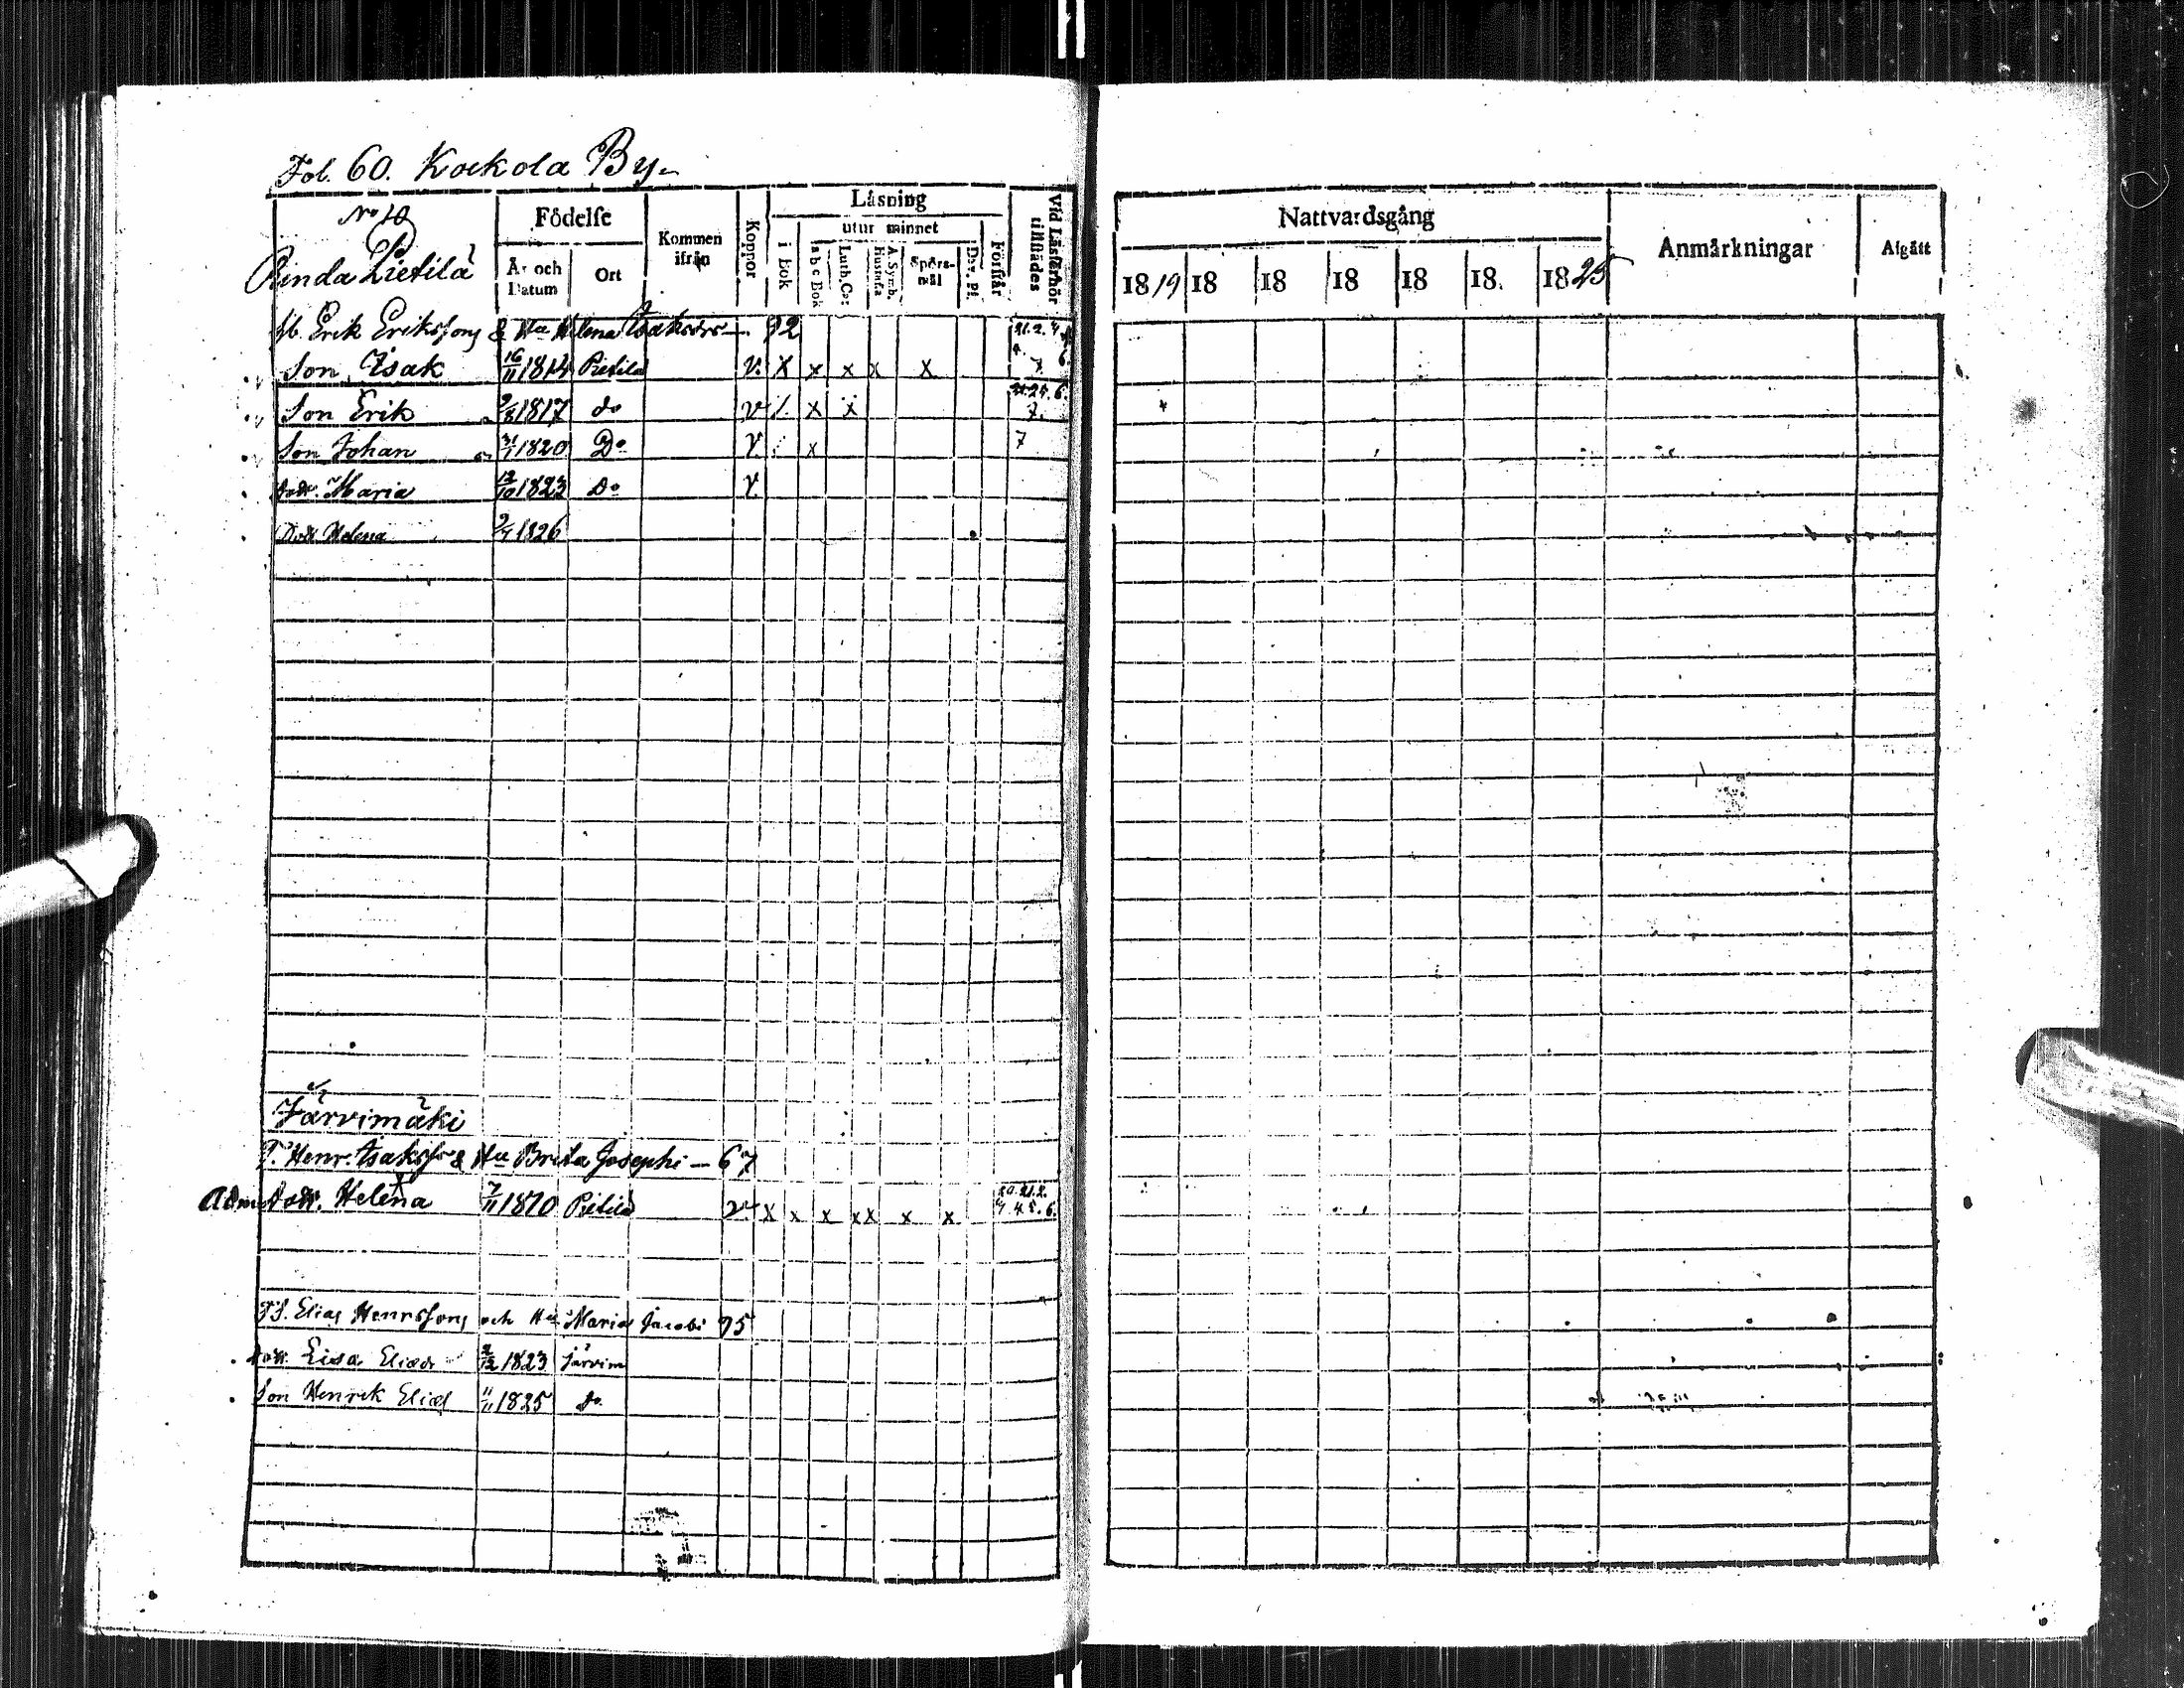 Fol. 60. Kockola By.
No 10
Rinda Pietilä
Födelse
År och Datum
Ort
Kommen ifrån
Koppor
Låsning
utur minnet
i Bok
a b c Bok
Luth. Cat.
A. Symb. Hustafla
Spörsmål
Dav. Ps.
Förstår
Vid Läsförhör tillstädes
Nattvardsgång
1819 18 18 18 18 18. 1825
Anmärkningar
Afgått
Erik Erikssons & Hu Helena Isaksdr — 92 21.2.4
Son Isak 16/11 1814 Pietilä v. x x x x x 7
Son Erik 9/8 1817 do v x x 7.
Son Johan 31/1 1820 Do v. x 7
Dotr. Maria 12/10 1823 Do v.
Dotr Helena 9/4 1826
Järvimäki
T. Henr. Isakss. & Hu Brita Josephi — 67
Adm Dotr. Helena 7/11 1810 Pietilä v x x x x x x x 20.21.2. 4.5.6.
TS. Elias Henrssons och Hu Maria Jacobi 75
Dotr. Lisa Eliædr 2/12 1823 Järvim
Son Henrik Eliæs 11/11 1825 do.